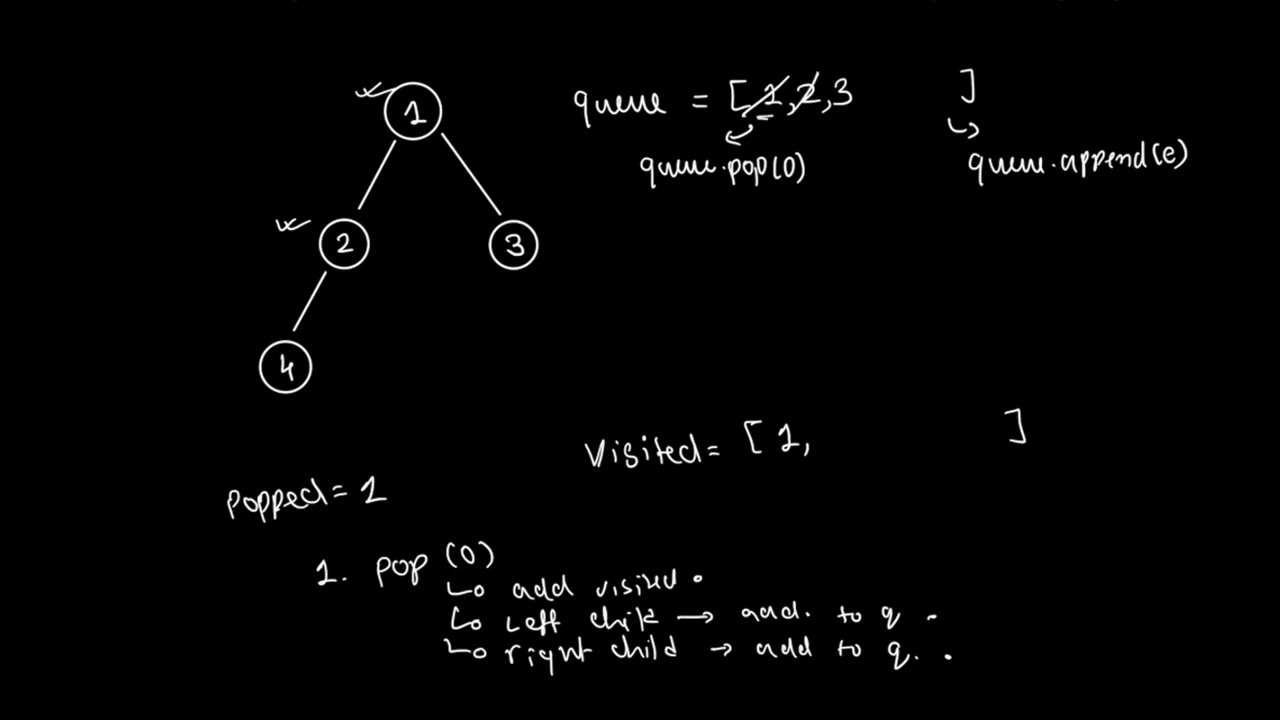 1
queue = [1,2,3 ]
queue.pop(0)
queue.append(e)
2
3
4
Visited= [1, ]
Popped= 1
1. pop (0)
add visited.
Left child → add. to q.
right child → add to q.